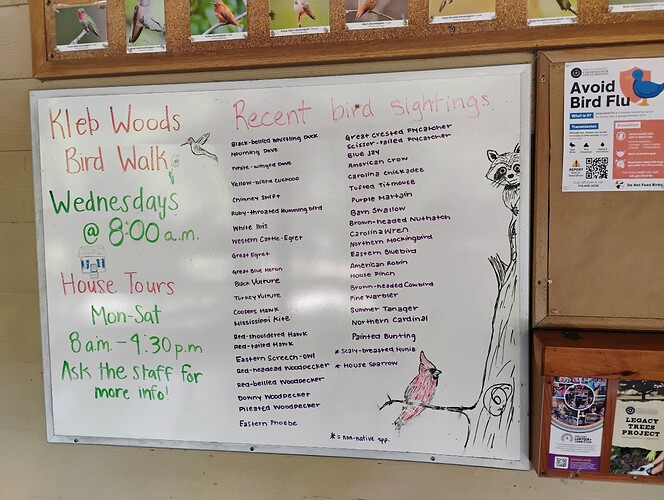 Kleb Woods
Bird Walk
Wednesdays
@ 8:00 a.m.
House Tours
Mon-Sat
8 a.m. - 4:30 p.m
Ask the staff for
more info!
Recent bird sightings
Black-bellied Whistling Duck
Mourning Dove
White-winged Dove
Yellow-billed Cuckoo
Chimney Swift
Ruby-throated Hummingbird
White Ibis
Western Cattle-Egret
Great Egret
Great Blue Heron
Black Vulture
Turkey Vulture
Coopers Hawk
Mississippi Kite
Red-shouldered Hawk
Red-tailed Hawk
Eastern Screech-owl
Red-headed Woodpecker
Red-bellied Woodpecker
Downy Woodpecker
Pileated Woodpecker
Eastern Phoebe
Great Crested Flycatcher
Scissor-tailed Flycatcher
Blue Jay
American Crow
Carolina Chickadee
Tufted Titmouse
Purple Martin
Barn Swallow
Brown-headed Nuthatch
Carolina Wren
Northern Mockingbird
Eastern Bluebird
American Robin
House Finch
Brown-headed Cowbird
Pine Warbler
Summer Tanager
Northern Cardinal
Painted Bunting
* Scaly-breasted Munia
* House Sparrow
* = non-native spp.
Avoid
Bird Flu
What is it?
Transmission
Prevention
REPORT
Do Not Feed Birds!
LEGACY
TREES
PROJECT